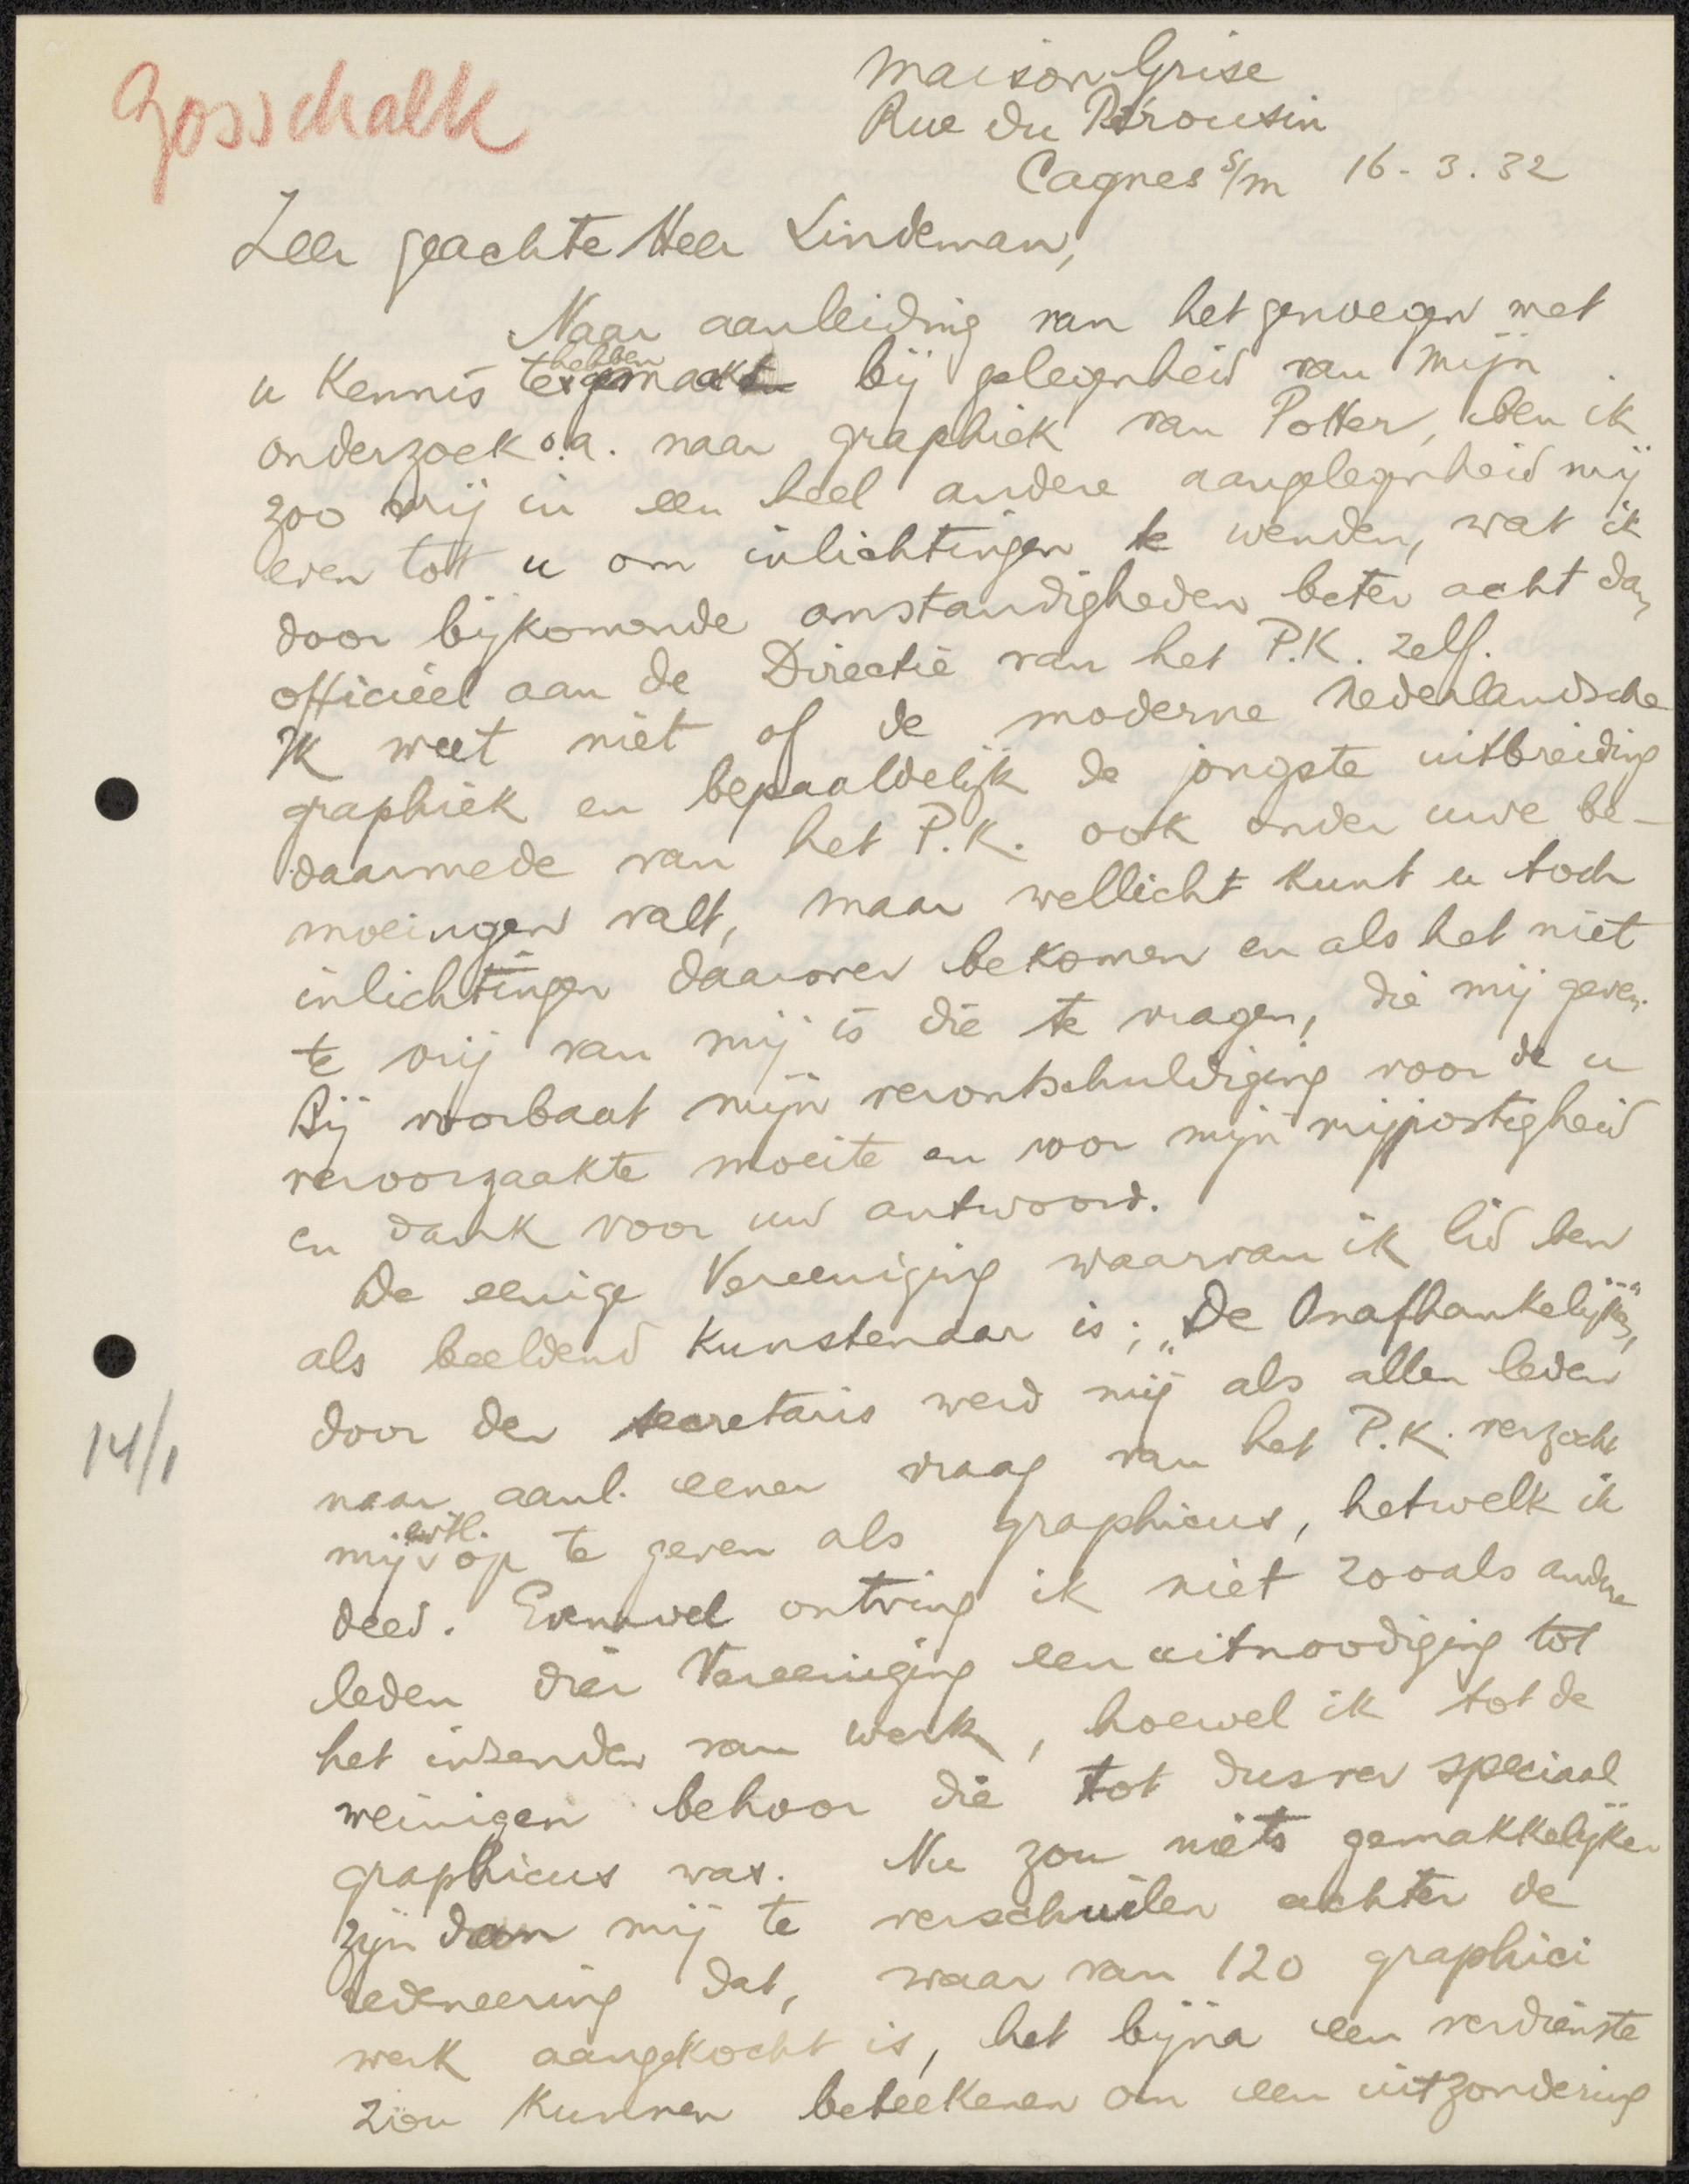 Gosschalk
Maison Grise
Rue du Pérousin
Cagnes s/m 16-3.32
Zeer geachte Heer Lindeman,
Naar aanleiding van het genoegen met
u Kennis te hebben gemaakt bij gelegenheid van mijn
onderzoek o.a. naar graphiek van Potter, ben ik
zoo vrij in een heel andere aangelegenheid mij
even tot u om inlichtingen te wenden, wat ik
door bijkomende omstandigheden beter acht dan
officieel aan de Directie van het P.K. zelf.
Ik weet niet of de moderne Nederlandsche
graphiek en bepaaldelijk de jongste uitbreiding
daarmede van het P.K. ook onder uwe be-
moeiingen valt, maar wellicht kunt u toch
inlichtingen daarover bekomen en als het niet
te vrij van mij is die te vragen, die mij geven.
Bij voorbaat mijn verontschuldiging voor de u
veroorzaakte moeite en voor mijn vrijpostigheid
en dank voor uw antwoord.
De eenige Vereeniging waarvan ik lid ben
als beeldend Kunstenaar is; „De Onafhankelijken",
door den secretaris werd mij als allen leden
naar aanl. eener vraag van het P.K. verzocht
mij evtl. op te geven als graphicus, hetwelk ik
deed. Evenwel ontving ik niet zooals andere
leden dier Vereeniging een uitnoodiging tot
het inzenden van werk, hoewel ik tot de
weinigen behoor die tot dusver speciaal
graphicus was. Nu zou niets gemakkelijker
zijn dan mij te verschuilen achter de
redeneering dat, waar van 120 graphici
werk aangekocht is, het bijna een verdienste
zou kunnen beteekenen om een uitzondering
14/1